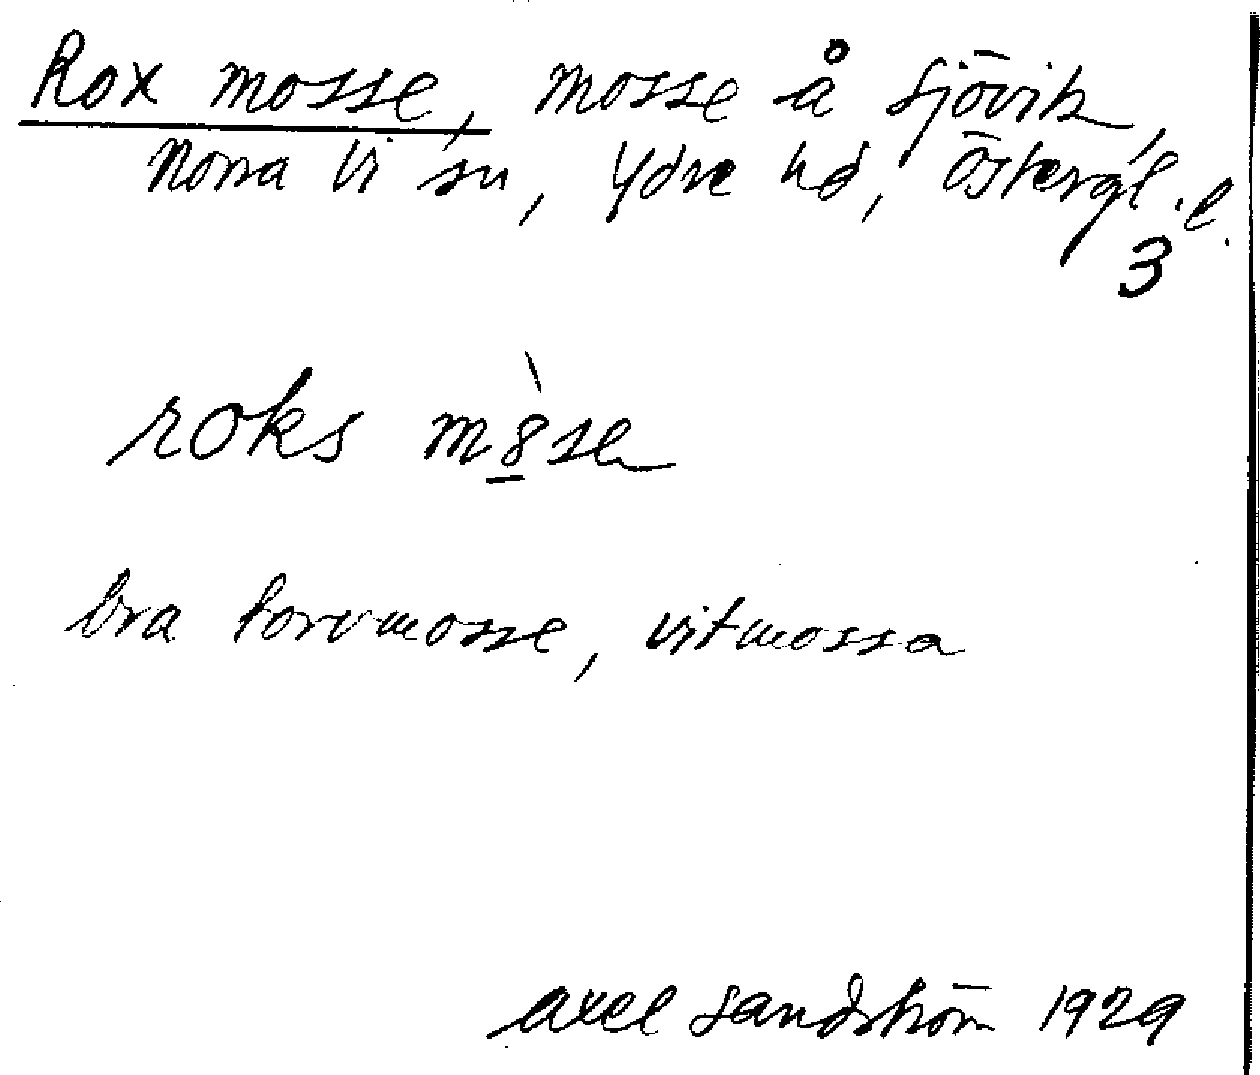 Rox mosse, mosse å Sjövik,
Norra Vi sn, Ydre hd, Östergl. l.
3
roks m8̲̀se
bra torvmosse, vitmossa
Axel Sandström 1929